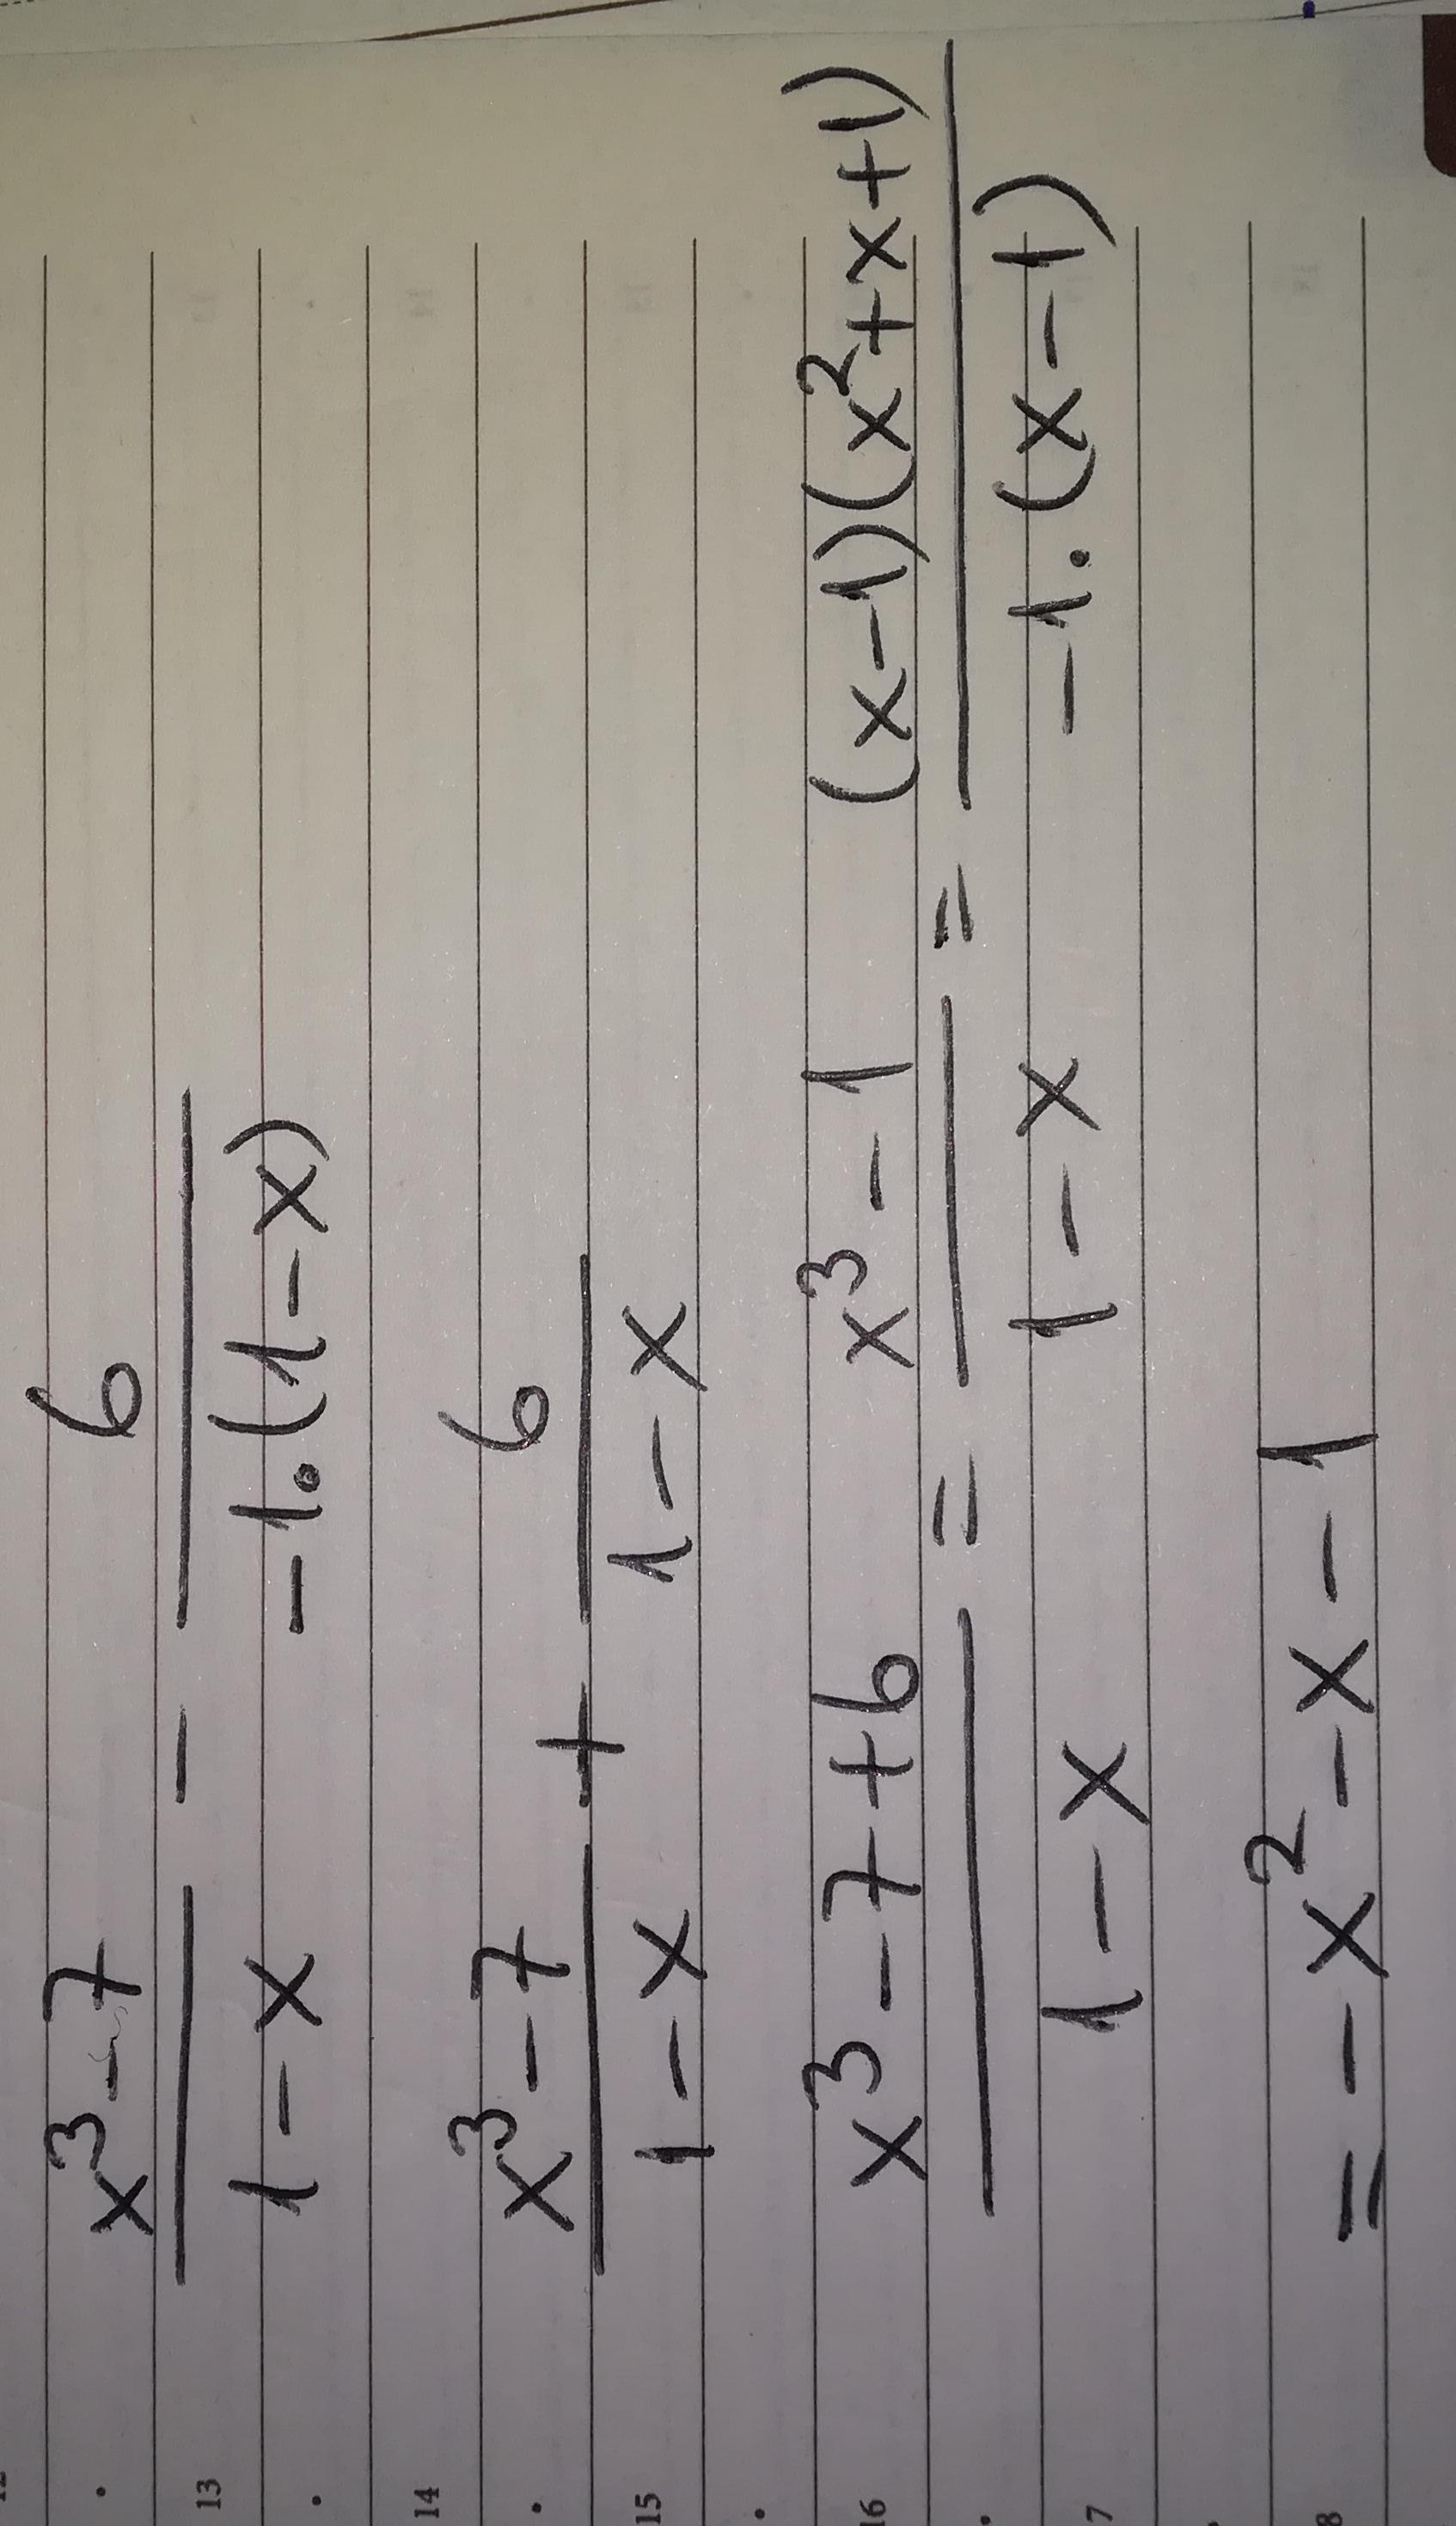 x³-7 / 1-x - 6 / -1·(1-x)
x³-7 / 1-x + 6 / 1-x
x³-7+6 / 1-x = x³-1 / 1-x = (x-1)(x²+x+1) / -1·(x-1)
= -x²-x-1
13
14
15
16
7
8